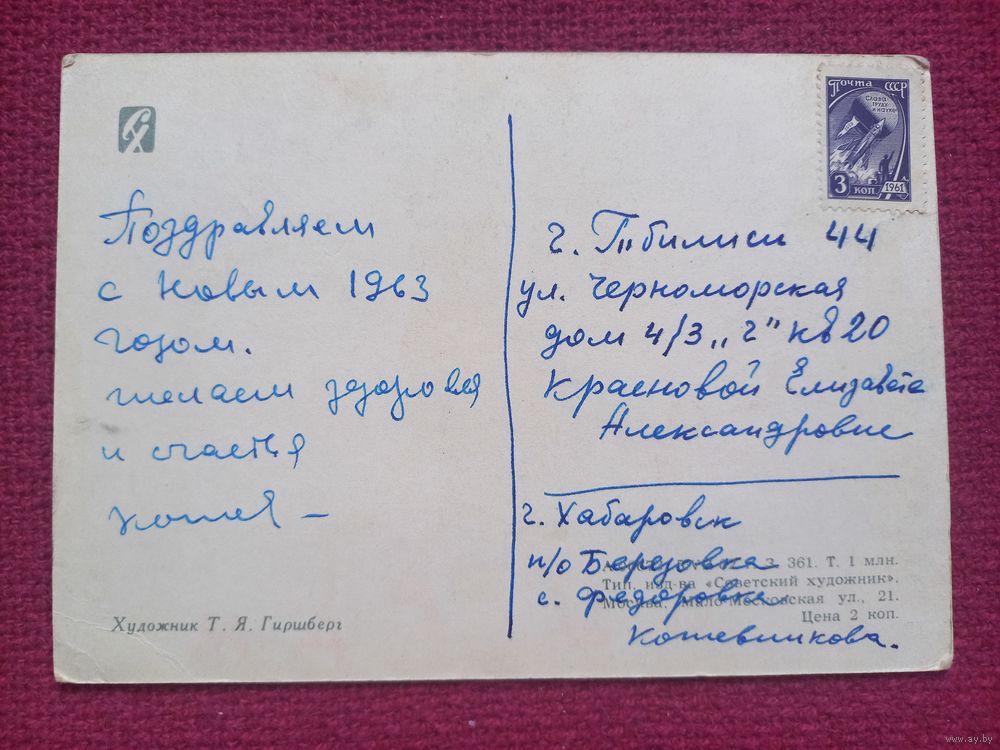 Поздравляем
с новым 1963
годом.
желаем здоровья
и счастья
Почта СССР
Слава
труду
и науке
3 коп. 1961
г. Тбилиси 44
ул. Черноморская
дом 4/3 „г" кв 20
Красновой Елизавете
Александровне
г. Хабаровск
п/о Березовка
с. Федоровка
Кошевникова.
З. 361. Т. 1 млн.
Тип. изд-ва «Советский художник».
Москва, Мало-Московская ул., 21.
Цена 2 коп.
Художник Т. Я. Гиршберг
www.ay.by